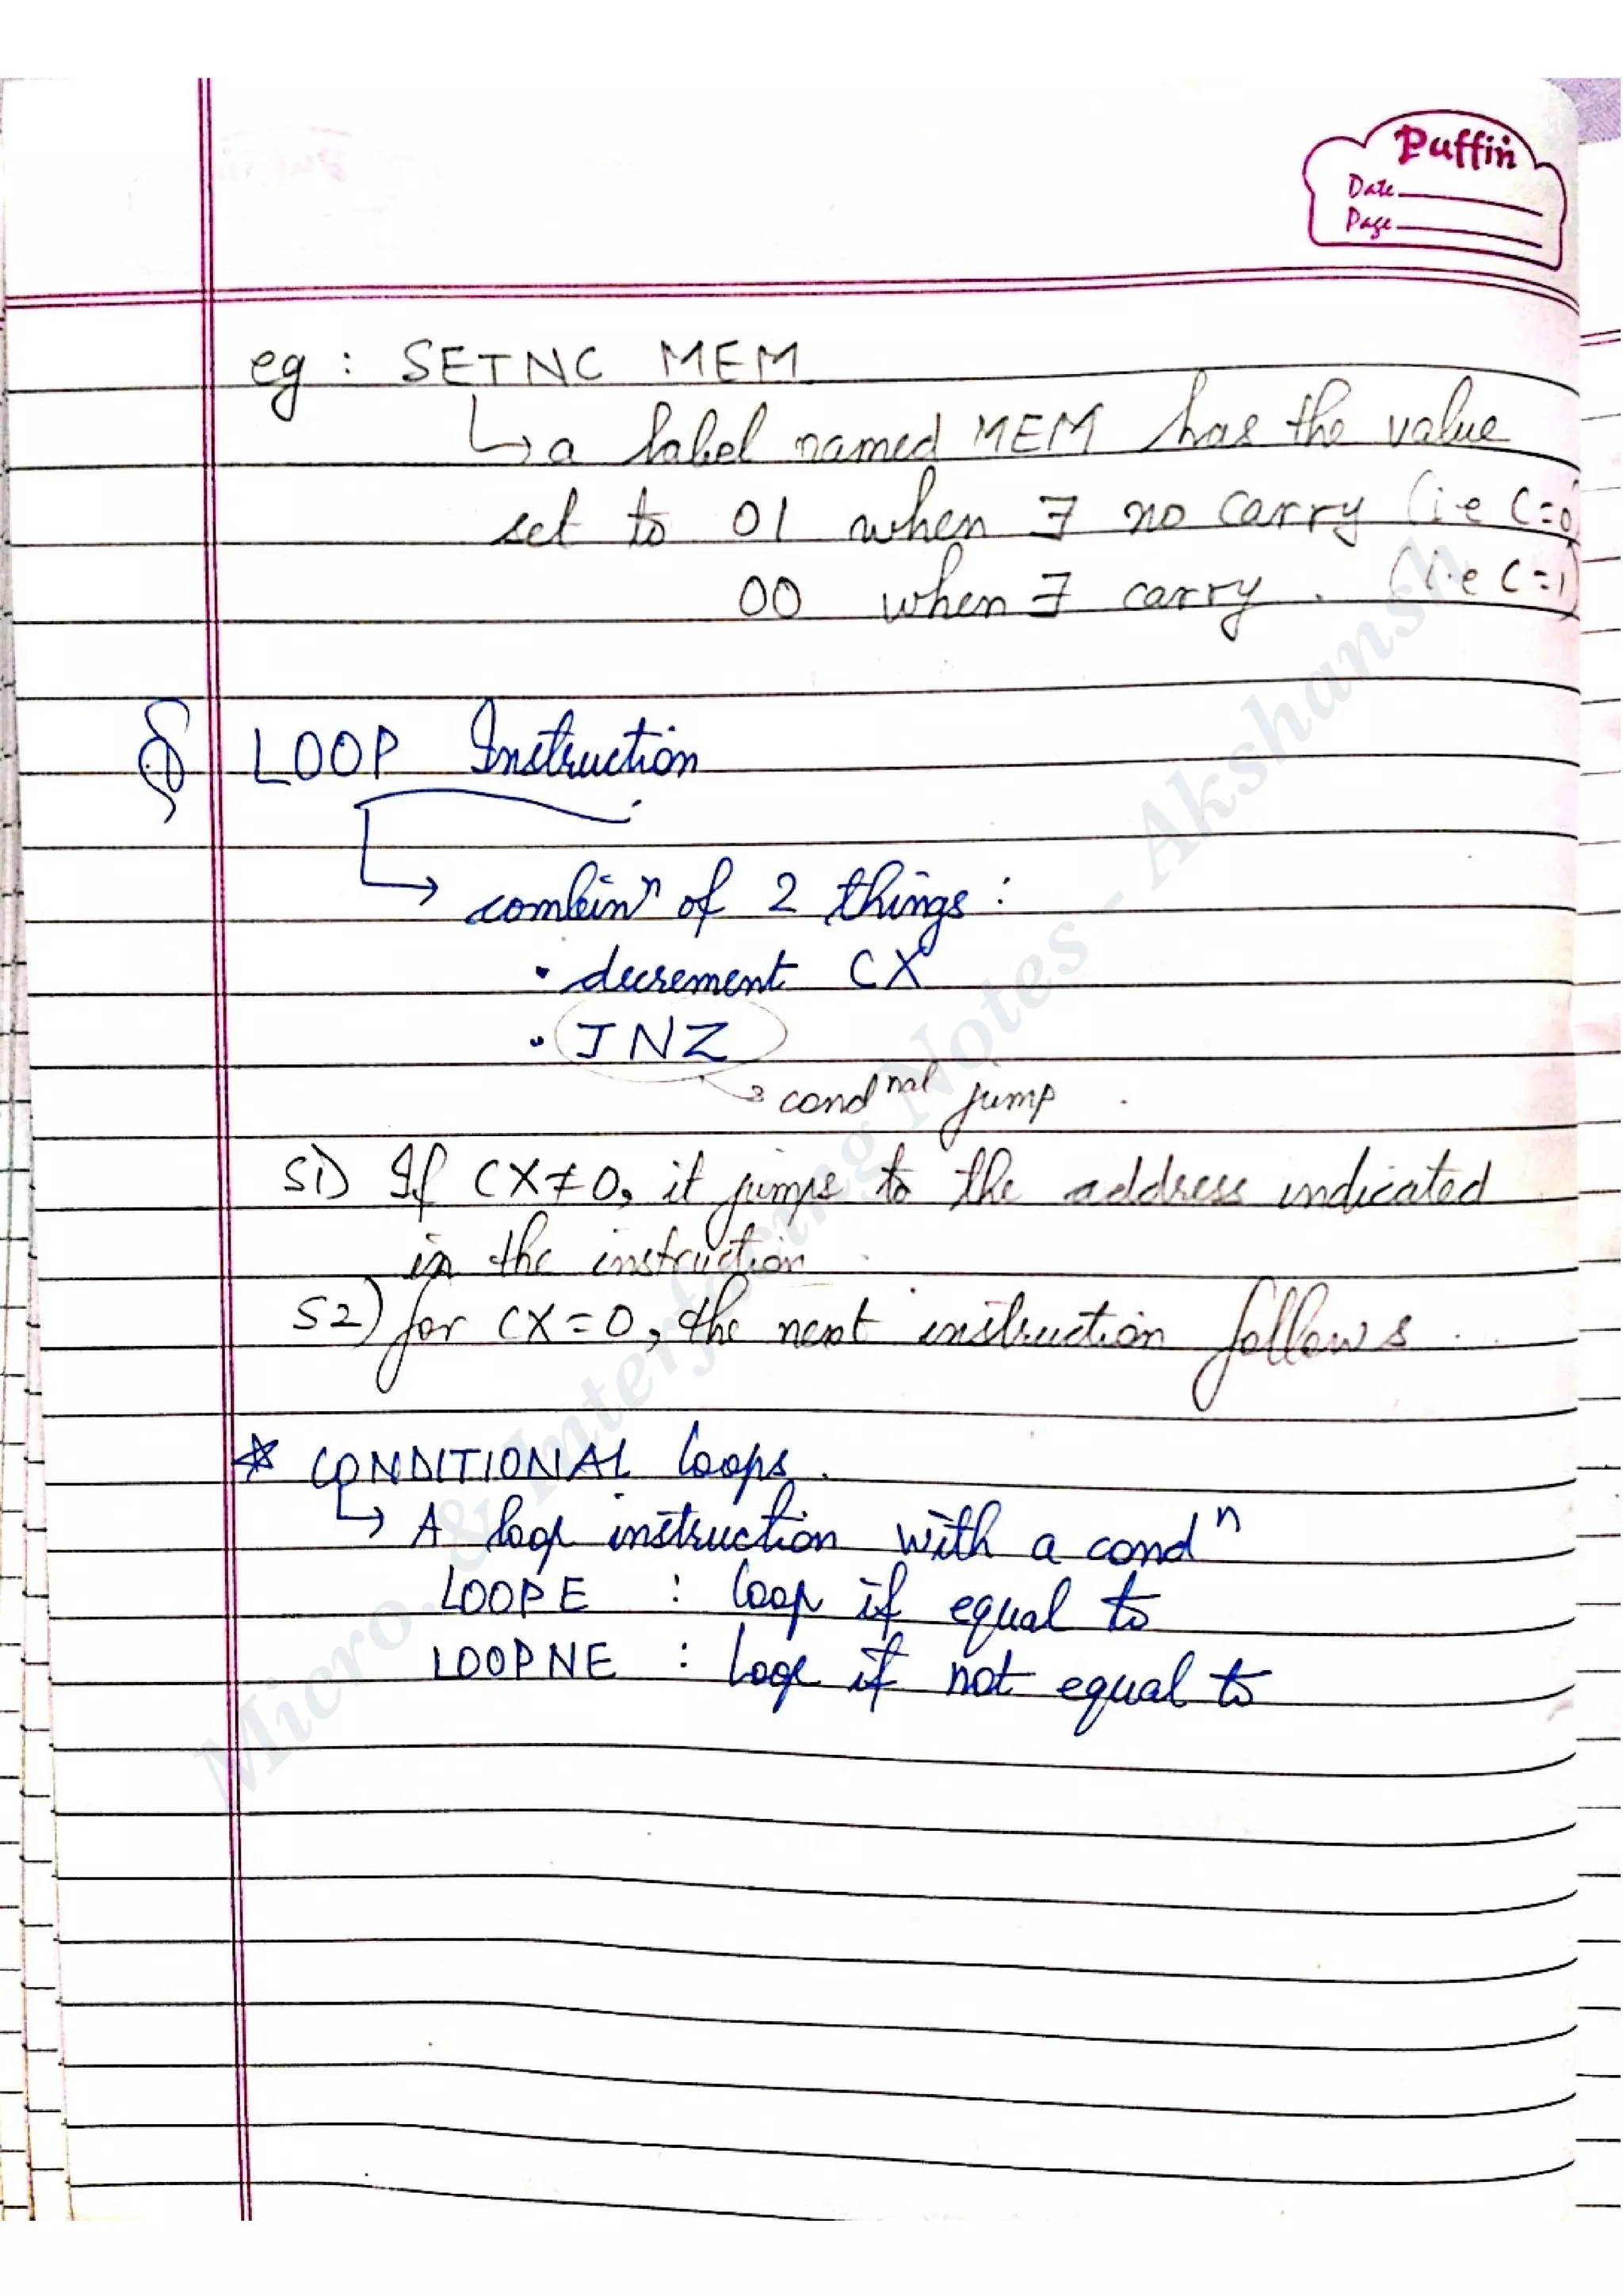 Puffin
Date
Page
eg : SETNC MEM
↳ a label named MEM has the value
set to 01 when ∃ no carry (i.e C=0)
00 when ∃ carry. (i.e C=1)
§ LOOP Instruction
↳ combinⁿ of 2 things :
• decrement CX
• JNZ
→ condⁿᵃˡ jump.
S1) If CX≠0, it jumps to the address indicated
in the instruction.
S2) for CX=0, the next instruction follows.
* CONDITIONAL loops.
↳ A loop instruction with a condⁿ
LOOPE : loop if equal to
LOOPNE : loop if not equal to
Micro. & Interfacing Notes - Akshansh